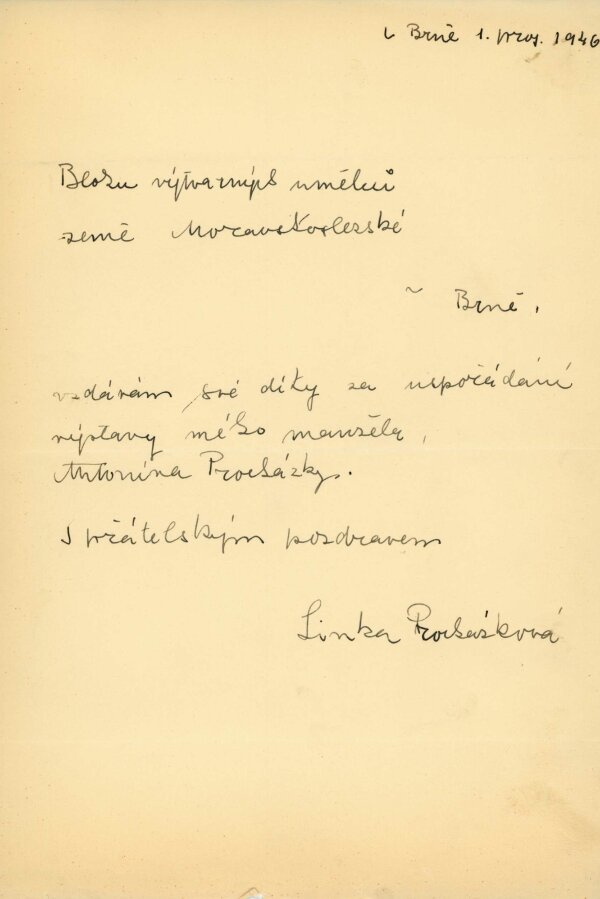 v Brně 1. pros. 1946
Bloku výtvarných umělců
země Moravskoslezské
v Brně.
vzdávám své díky za uspořádání
výstavy mého manžela,
Antonína Procházky.
S přátelským pozdravem
Linka Procházková